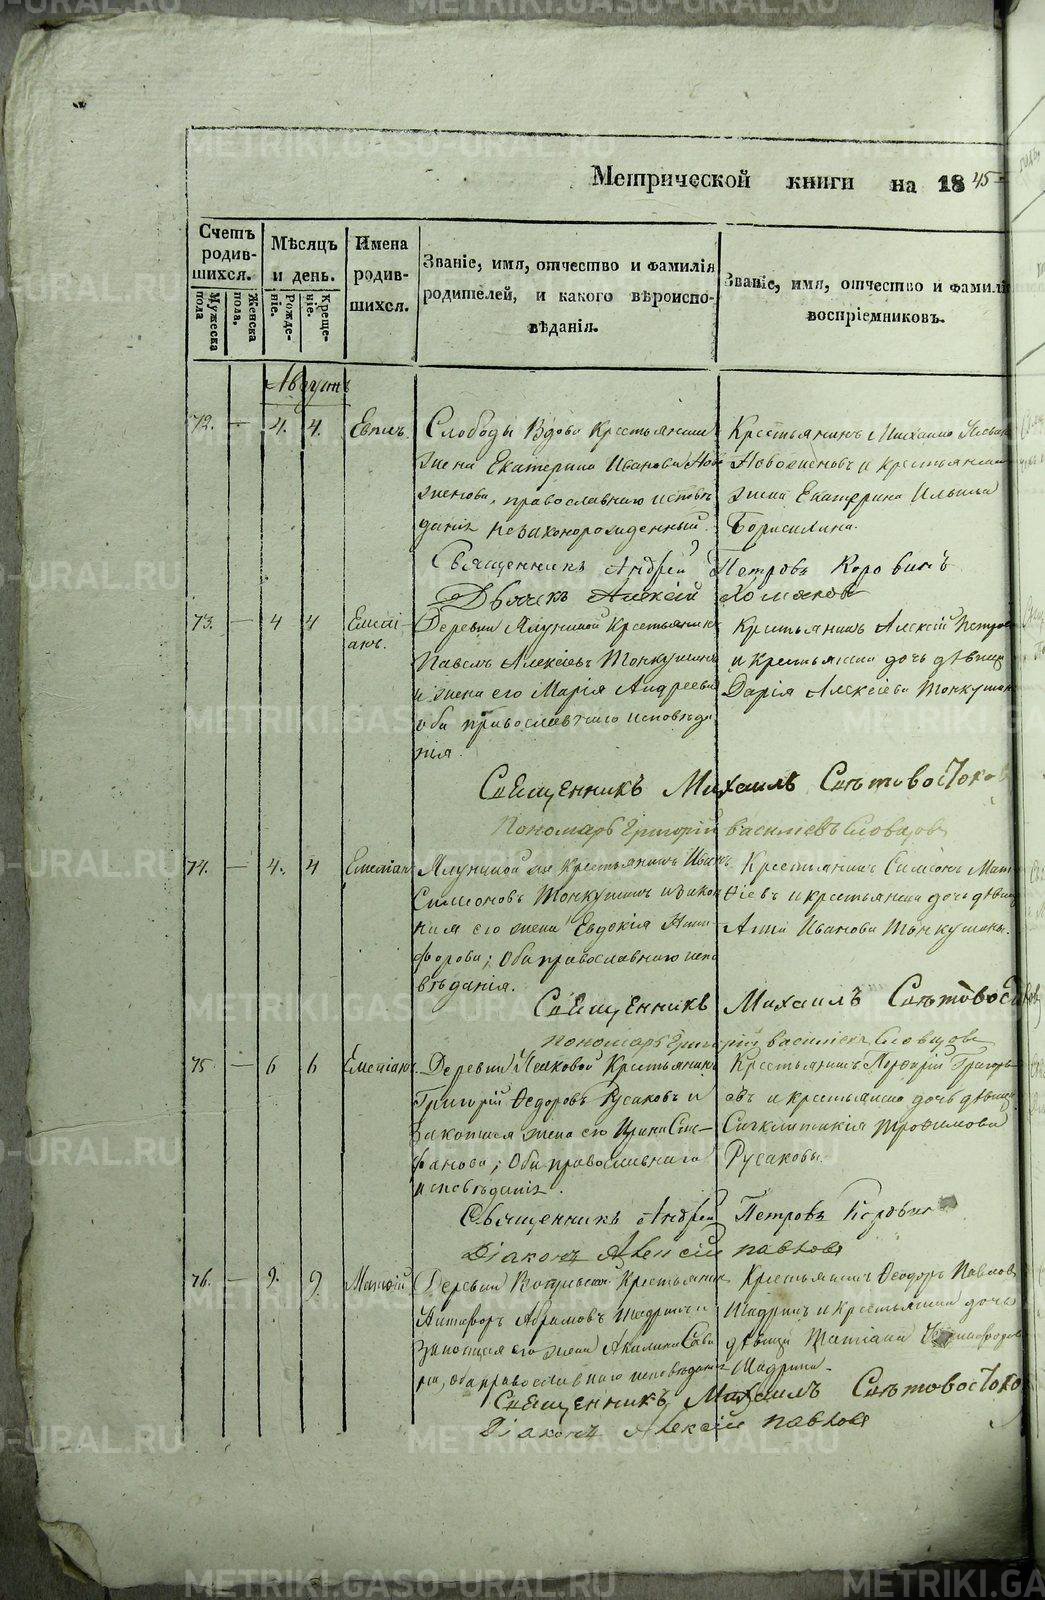 Метрической книги на 1845
Счетъ родив-шихся.
Мужеска пола
Женска пола.
Мѣсяцъ и день.
Рожде-ніе.
Креще-ніе.
Имена родив-шихся.
Званіе, имя, отчество и фамилія
родителей, и какого вѣроиспо-
вѣданія.
Званіе, имя, отчество и фамилі
воспріемниковъ.
Августъ
72. — 4. 4. Евплъ.
Слободы Вдова Крестьянская
жена Екатерина Иванова
православнаго исповѣ
данія незаконорожденный.
Крестьянинъ Михаилъ
и крестьянская
жена Екатерина Ильина
Священникъ Андрей Петровъ Коровинъ
Дьячекъ Алексій Хомяковъ
73. — 4 4 Емелі-
анъ.
Деревни Ялуниной Крестьянинъ
Павелъ Алексіевъ Тонкушинъ
и жена его Марія Андреева
оба православнаго исповѣда
нія.
Крестьянинъ Алексій Петров
и Крестьянская дочь дѣвица
Дарія Алексіева Тонкушин
Священникъ Михаилъ Свѣтовостоков
Пономарь Григорій Василіевъ Словцовъ
74. — 4. 4 Емеліан
Ялуниной же Крестьянинъ Иванъ
Симеоновъ Тонкушинъ и закон
ная его жена Евдокія Ники
форова; Оба православнаго испо
вѣданія.
Крестьянинъ Симеонъ Мат
ѳіевъ и крестьянская дочь дѣвица
Анна Иванова Тонкушины.
Священникъ Михаилъ Свѣтовосто
Пономарь Григорій Василіевъ Словцовъ
75 — 6 6 Емеліанъ.
Деревни Крестьянинъ
Григорій Ѳедоровъ Русаковъ и
законная жена его Ирина Сте-
фанова; Оба православнаго
исповѣданія.
Крестьянинъ Порфирій Григорь
евъ и крестьянская дочь дѣвица
Сигклитикія Трофимова
Русаковы.
Священникъ Андрей Петровъ Коровинъ
Діаконъ Алексій Павловъ
76. — 9. 9 Матѳій
Деревни Крестьянинъ
Никифоръ Абрамовъ Шадринъ и
законная его жена Акилина Савви
на, оба православнаго исповѣданія
Крестьянинъ Ѳеодоръ Павлов
Шадринъ и Крестьянская дочь
дѣвица Татіана Никифорова
Шадрина.
Священникъ Михаилъ Свѣтовостоко
Діаконъ Алексій Павловъ
METRIKI.GASO-URAL.RU